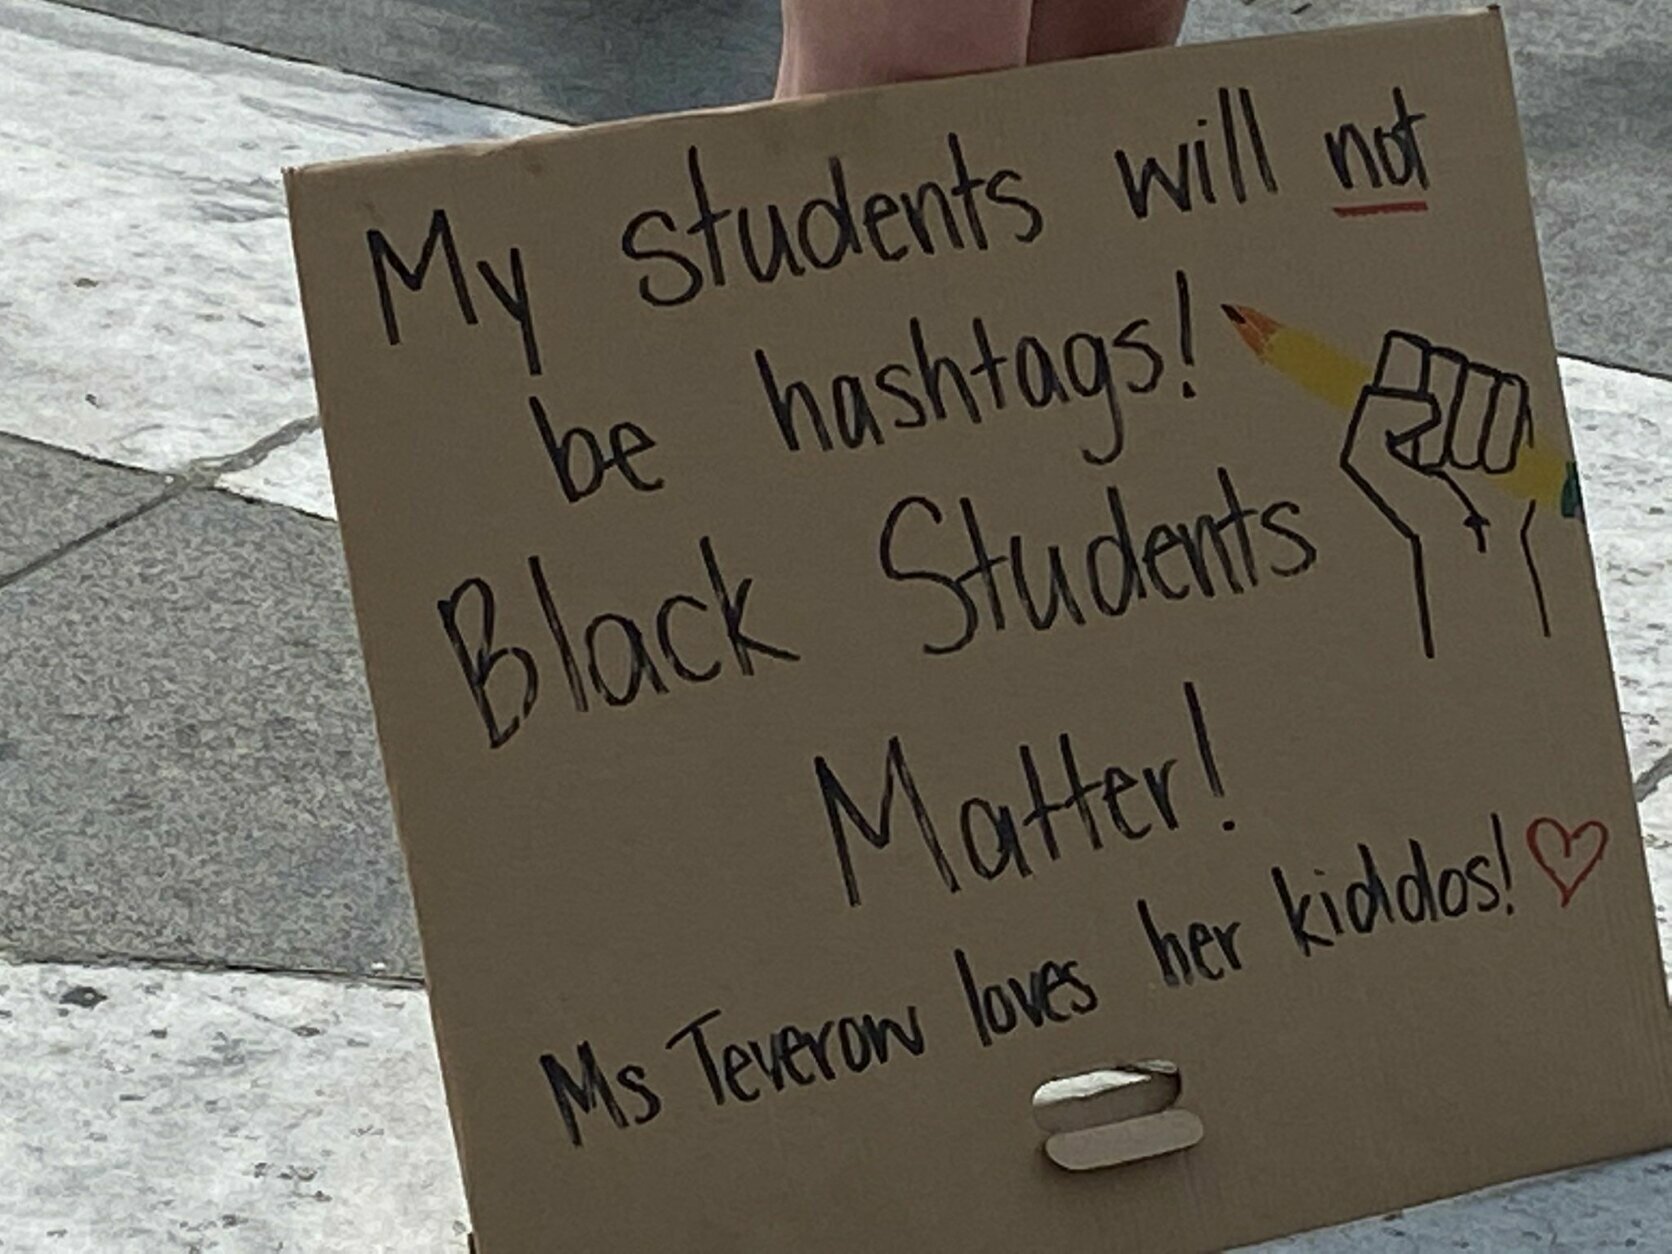 My students will not
be hashtags!
Black Students
Matter!
Ms Teverow loves her kiddos!